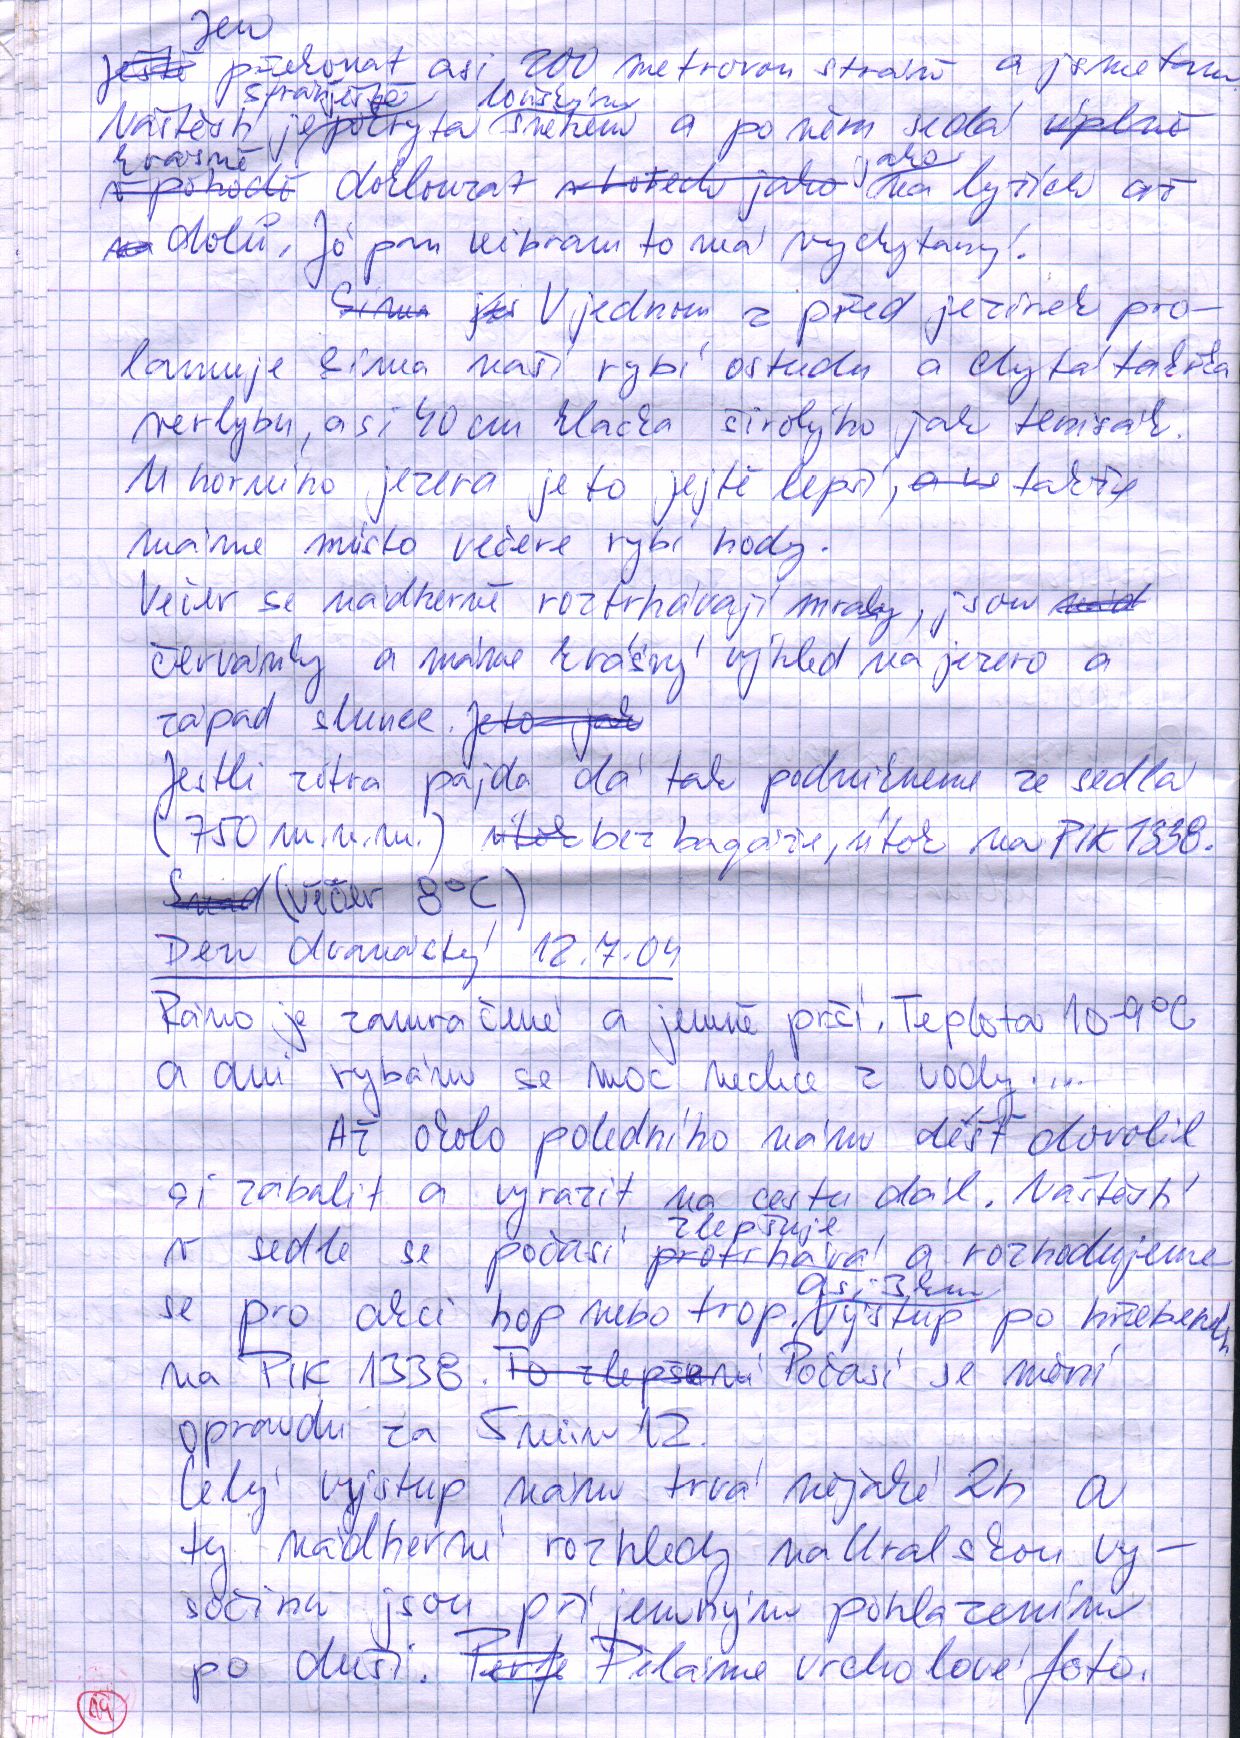 Jen
Ještě překonat asi 200 metrovou stráň a jsme tam
stráň ještě loňským
Naštěstí je pokryta sněhem a po něm se dá úplně
krásně jako
v pohodě doklouzat v botech jako na lyžích až
na dolů. Jó pan Vibram to má vychytaný!
Šíma jes V jednom z před jezírek pro-
lamuje Šíma naší rybí ostudu a chytá takřka
verlybu, asi 40 cm klacka širokýho jak tenisák.
U horního jezera je to jejtě lepší, a v takže
máme místo večeře rybí hody.
Večer se nádherně roztrhávají mraky, jsou nád
červánky a máme krásný výhled na jezero a
západ slunce. Je to jak
Jestli zítra pajda dá tak podnikneme ze sedla
(750 m.n.m.) útok bez bagáže, útok na PIK 1338.
Snad (večer 8°C)
Den dvanáctý 12.7.04
Ráno je zamračené a jemně prší. Teplota 10-9°C
a ani rybám se moc nechce z vody....
Až okolo poledního nám déšť dovolil
si zabalit a vyrazit na cestu dál. Naštěstí
zlepšuje
v sedle se počasí protrhává a rozhodujeme
asi 3 km
se pro akci hop nebo trop. Výstup po hřebenech
na PIK 1338. To zlepšení Počasí se mění
opravdu za 5 min 12.
Celý výstup nám trvá nějaké 2h a
ty nádherné rozhledy na Uralskou vy-
sočinu jsou příjemným pohlazením
po duši. Děláme vrcholové foto.
19